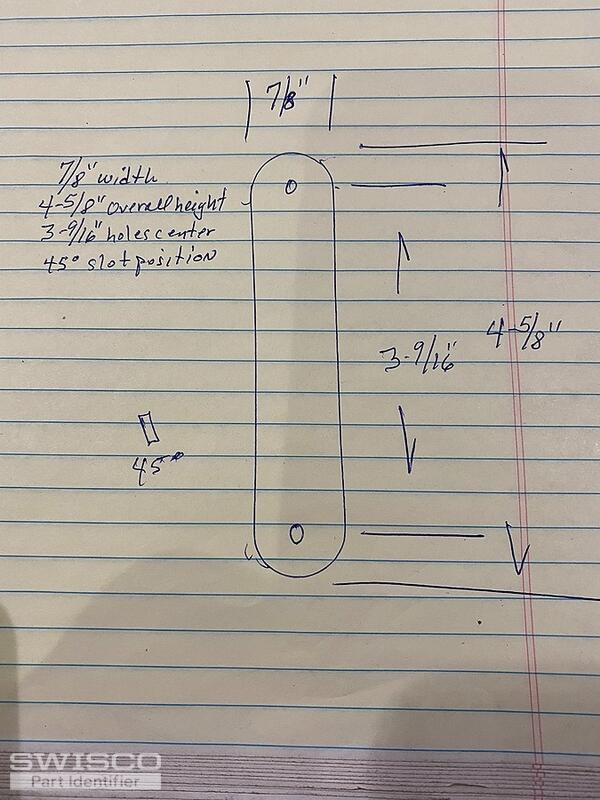 7/8"
7/8" width
4-5/8" overall height
3-9/16" holes center
45° slot position
3-9/16
4-5/8"
45°
SWISCO
Part Identifier